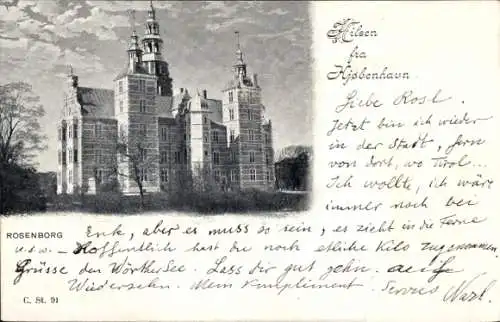 Hilsen
fra
Kjøbenhavn.
Liebe Rosl.
Jetzt bin ich wieder
in der Stadt, fern
von dort, wo Tirol...
Ich wollte, ich wär
immer noch bei
ROSENBORG
Euk, aber es muss so sein, es zieht in die Ferne
u.s.w. — Hoffentlich hast du noch etliche Kilo zugenommen,
Grüsse den Wörther See. Lass dir gut gehn.
Wiedersehen. Mein Kompliment. Servus
C. St. 91